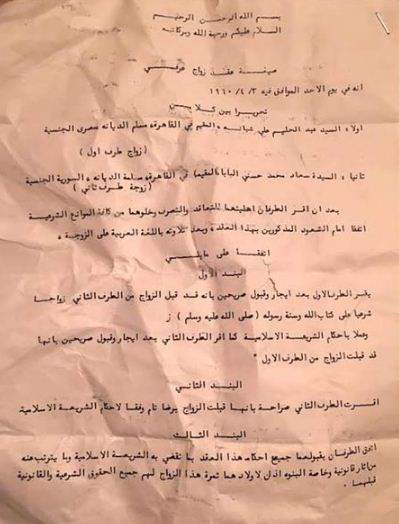 بسم الله الرحمن الرحيم
السلام عليكم ورحمة الله وبركاته
صيغة عقد زواج عرفي
انه في يوم الاحد الموافق فيه ١٩٦٠/٤/٣
تحريرا بين كلا من
اولا ء السيد عبد الحليم علي شبانه ء المقيم في القاهرة ء مسلم الديانه ء مصرى الجنسية
( زواج طرف اول )
ثانيا ء السيدة سعاد محمد حسني البابا ء المقيمة في القاهرة ء مسلمة الديانة ء السورية الجنسية
( زوجة طرف ثاني )
بعد ان اقر الطرفان اهليتهما للتعاقد والتصرف وخلوهما من كافة الموانع الشرعية
اتفقا امام الشهود المذكورين بهذا العقد ء وبعد تلاوته باللغة العربية على الزوجية ء
اتفقا على مايلي
البند الاول
يقر الطرف الاول بعد ايجاب وقبول صريحين بانه قد قبل الزواج من الطرف الثاني زواجا
شرعيا على كتاب الله وسنة رسوله ( صلي الله عليه وسلم )
وعملا باحكام الشريعة الاسلامية كما اقر الطرف الثاني بعد ايجار وقبول صريحين بانها
قد قبلت الزواج من الطرف الاول "
البند الثاني
اقرت الطرف الثاني صراحة بانها قبلت الزواج برضا تام وفقا لاحكام الشريعة الاسلامية
البند الثالث
اتفق الطرفان بقبولهما جميع احكام هذا العقد بما تقضي به الشريعة الاسلامية وما يترتب عنه
من اثار قانونية وخاصة البنوه اذان لاولاد هما ثمرة هذا الزواج لهم جميع الحقوق الشرعية والقانونية
قبلهما .